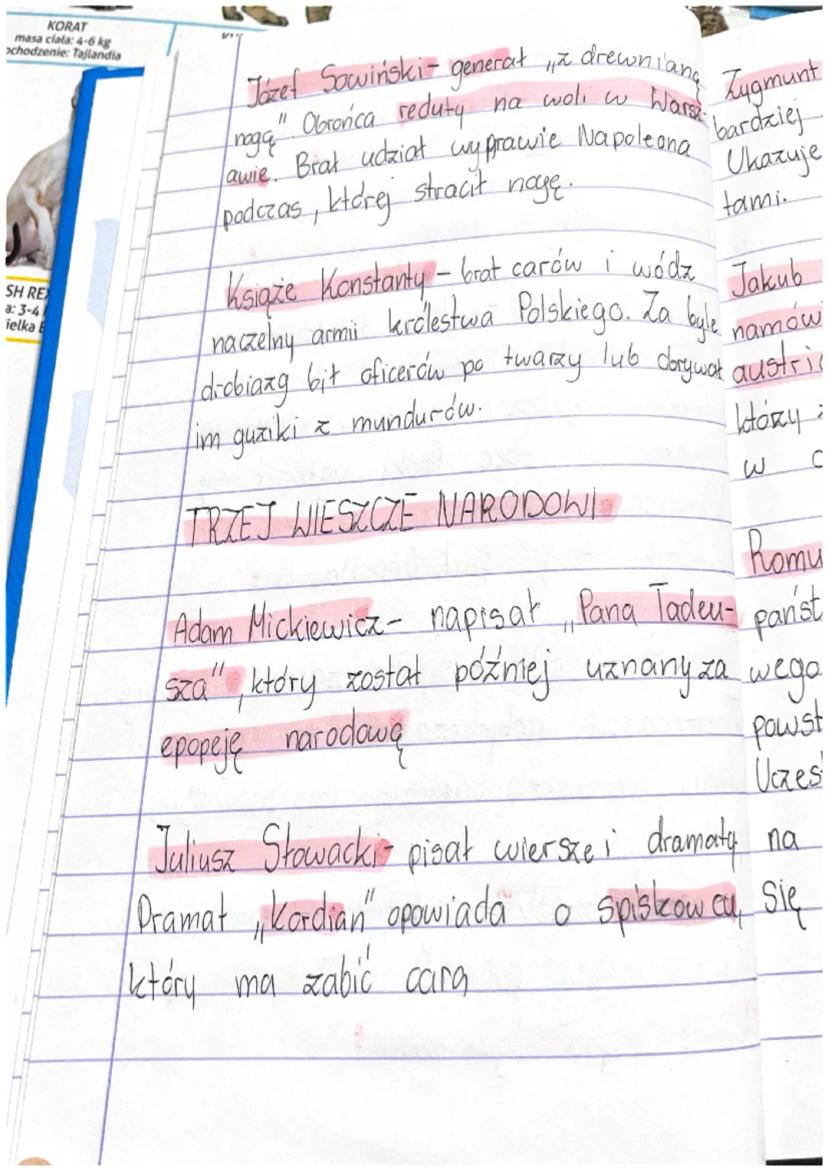 KORAT
masa ciała: 4-6 kg
ochodzenie: Tajlandia
SH REX
a: 3-4
ielka B
Józef Sowiński - generał „z drewnianą
nogą". Obrońca reduty na woli w Warsz-
awie. Brał udział wyprawie Napoleona
podczas, której stracił nogę.
Książe Konstanty - brat carów i wódz
naczelny armii królestwa Polskiego. Za byle
drobiazg bił oficerów po twarzy lub obrywał
im guziki z mundurów.
TRZEJ WIESZCZE NARODOWI
Adam Mickiewicz - napisał „Pana Tadeu-
sza", który został później uznany za
epopeję narodową
Juliusz Słowacki - pisał wiersze i dramaty
Dramat „Kordian" opowiada o spiskowcu,
który ma zabić cara
Zygmunt
bardziej
Ukazuje
tami.
Jakub
namów
austria
którzy z
w c
Romu
państ
wego
powst
Uczes
na
się